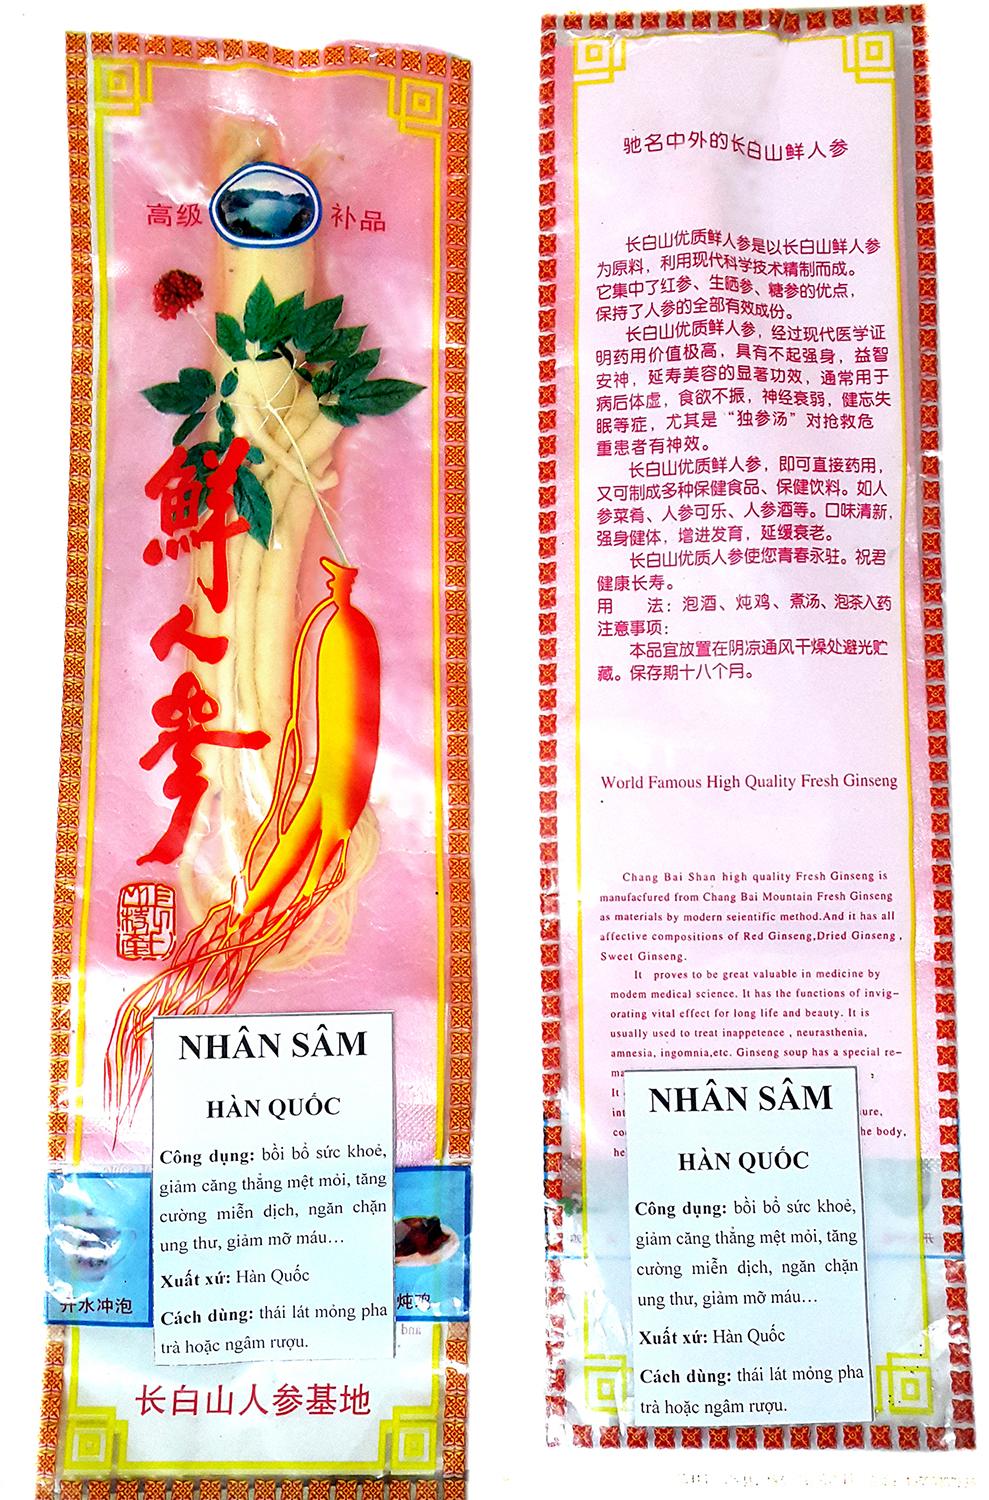 高级 补品
鮮
人
參
NHÂN SÂM
HÀN QUỐC
Công dụng: bồi bổ sức khoẻ,
giảm căng thẳng mệt mỏi, tăng
cường miễn dịch, ngăn chặn
ung thư, giảm mỡ máu…
Xuất xứ: Hàn Quốc
Cách dùng: thái lát mỏng pha
trà hoặc ngâm rượu.
开水冲泡
炖鸡
长白山人参基地
驰名中外的长白山鲜人参
长白山优质鲜人参是以长白山鲜人参
为原料，利用现代科学技术精制而成。
它集中了红参、生晒参、糖参的优点，
保持了人参的全部有效成份。
长白山优质鲜人参，经过现代医学证
明药用价值极高，具有不起强身，益智
安神，延寿美容的显著功效，通常用于
病后体虚，食欲不振，神经衰弱，健忘失
眠等症，尤其是“独参汤”对抢救危
重患者有神效。
长白山优质鲜人参，即可直接药用，
又可制成多种保健食品、保健饮料。如人
参菜肴、人参可乐、人参酒等。口味清新，
强身健体，增进发育，延缓衰老。
长白山优质人参使您青春永驻。祝君
健康长寿。
用 法：泡酒、炖鸡、煮汤、泡茶入药
注意事项：
本品宜放置在阴凉通风干燥处避光贮
藏。保存期十八个月。
World Famous High Quality Fresh Ginseng
Chang Bai Shan high quality Fresh Ginseng is
manufacfured from Chang Bai Mountain Fresh Ginseng
as materials by modern seientific method.And it has all
affective compositions of Red Ginseng,Dried Ginseng ,
Sweet Ginseng.
It proves to be great valuable in medicine by
modem medical science. It has the functions of invig-
orating vital effect for long life and beauty. It is
usually used to treat inappetence , neurasthenia,
amnesia, ingomnia,etc. Ginseng soup has a special re-
ma
It
int ure,
co he body,
he
NHÂN SÂM
HÀN QUỐC
Công dụng: bồi bổ sức khoẻ,
giảm căng thẳng mệt mỏi, tăng
cường miễn dịch, ngăn chặn
ung thư, giảm mỡ máu…
Xuất xứ: Hàn Quốc
Cách dùng: thái lát mỏng pha
trà hoặc ngâm rượu.